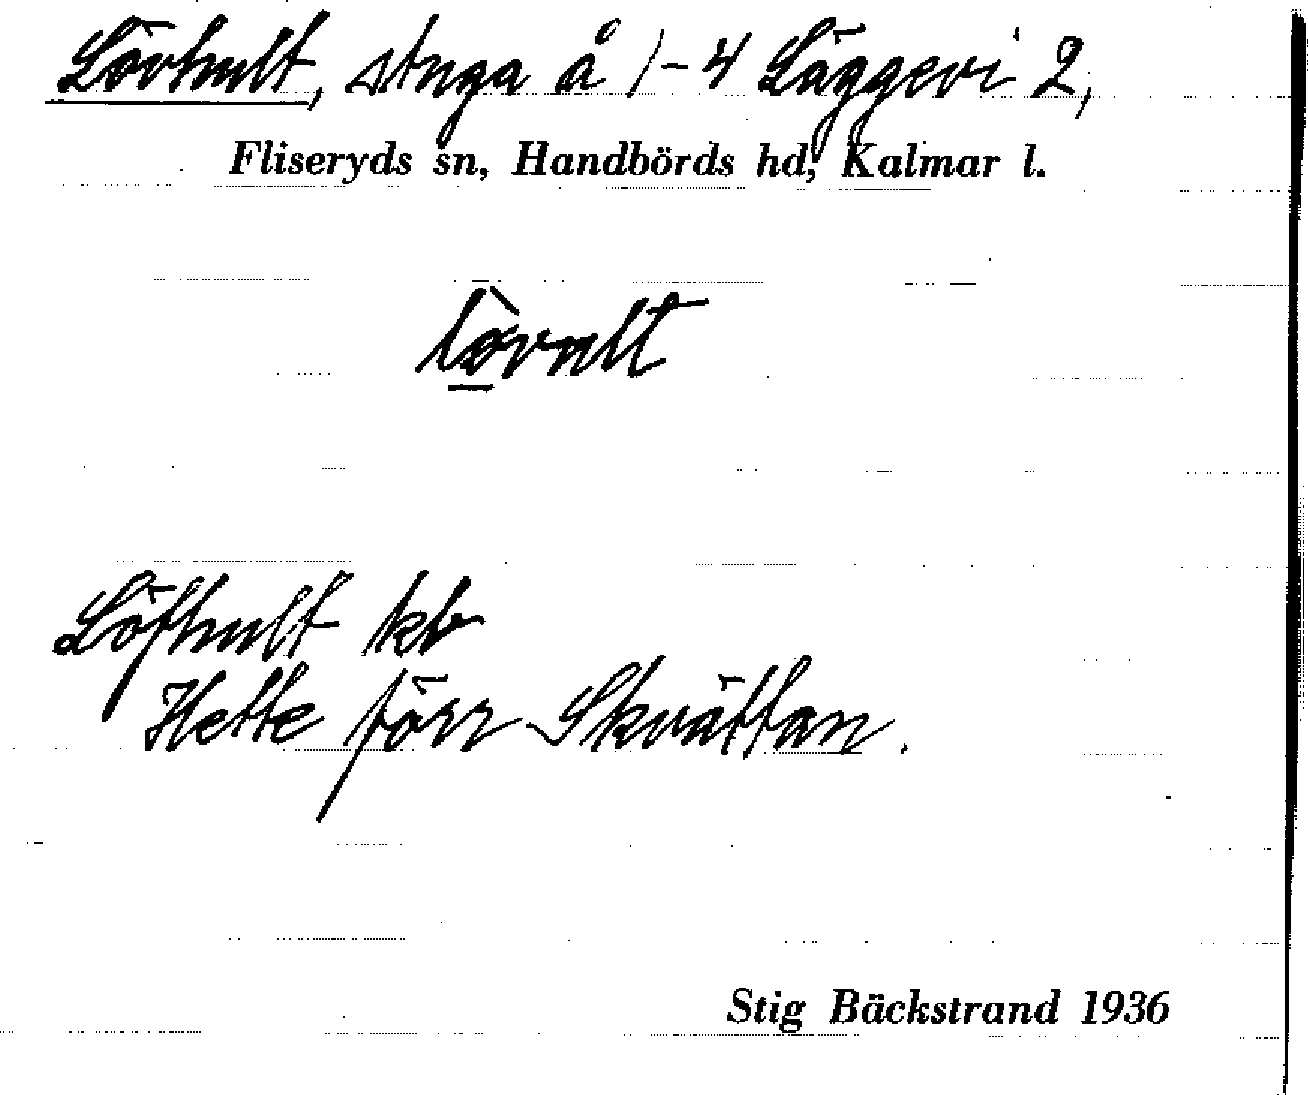 Lövhult, stuga å 1-4 Läggevi 2,
Fliseryds sn, Handbörds hd, Kalmar l.
lò̠vult
Löfhult kb
Hette förr Skvättan.
Stig Bäckstrand 1936